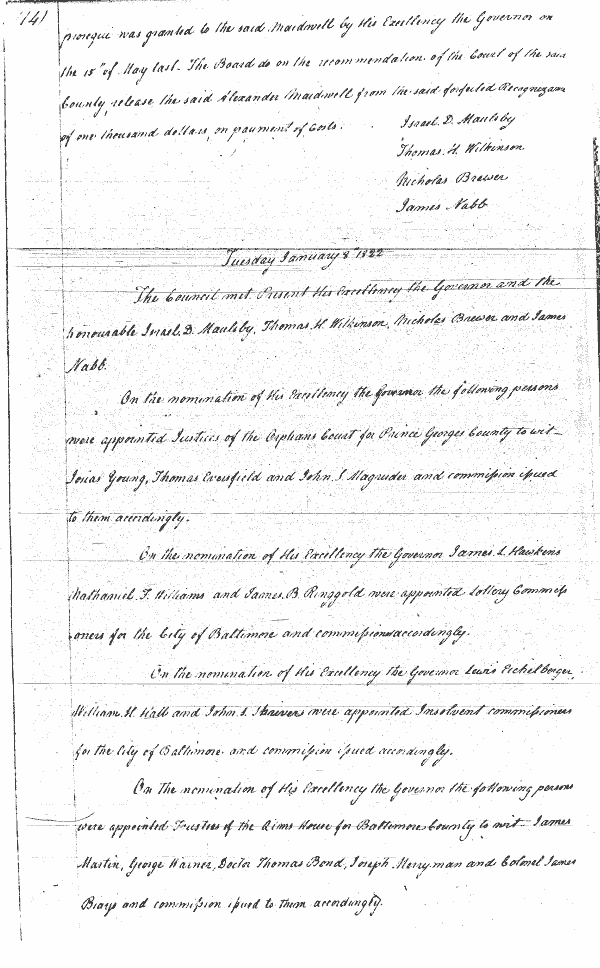 141
prosequi was granted to the said Maidwell by His Excellency the Governor on
the 15th of May last. The Board do on the recommendation of the Court of the said
County, release the said Alexander Maidwell from the said forfeited Recognizance
of one thousand dollars, on payment of Costs.
Israel. D. Maulsby
Thomas. H. Wilkinson
Nicholas Brewer
James Nabb
Tuesday January 8th 1822
The Council met. Present His Excellency the Governor and the
honourable Israel. D. Maulsby, Thomas. H. Wilkinson, Nicholas Brewer and James
Nabb.
On the nomination of His Excellency the Governor the following persons
were appointed Justices of the Orphans Court for Prince Georges County to wit—
Josias Young, Thomas Eversfield and John. S. Magruder and commission issued
to them accordingly.
On the nomination of His Excellency the Governor James. L. Hawkins
Nathaniel. F. Williams and James. B. Ringgold were appointed Lottery Commiss
ioners for the City of Baltimore and commissioned accordingly.
On the nomination of His Excellency the Governor Lewis Eichelberger,
William. H. Hall and John. S. were appointed Insolvent commissioners
for the City of Baltimore and commission issued accordingly.
On the nomination of His Excellency the Governor the following persons
were appointed Trustees of the Alms House for Baltimore County to wit— James
Martin, George Warner, Doctor Thomas Bond, Joseph Merryman and Colonel James
Biays and commission issued to them accordingly.